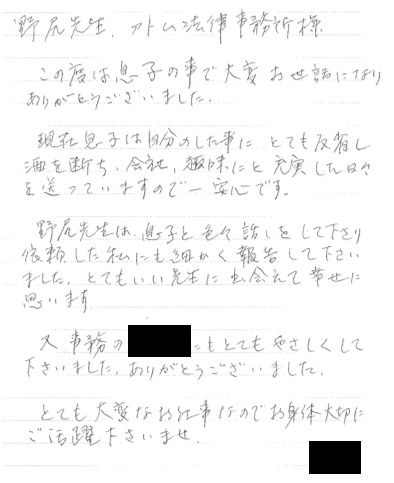 野尻先生、アトム法律事務所様
この度は息子の事で大変お世話になり
ありがとうございました。
現在息子は自分のした事にとても反省し
酒を断ち、会社、趣味にと充実した日々
を送っていますので一安心です。
野尻先生は息子と色々話しをして下さり
依頼した私にも細かく報告して下さい
ました。とてもいい先生に出会えて幸せに
思います。
又、事務の
にもとてもやさしくして
下さいました。ありがとうございました。
とても大変なお仕事なのでお身体大切に
ご活躍下さいませ。